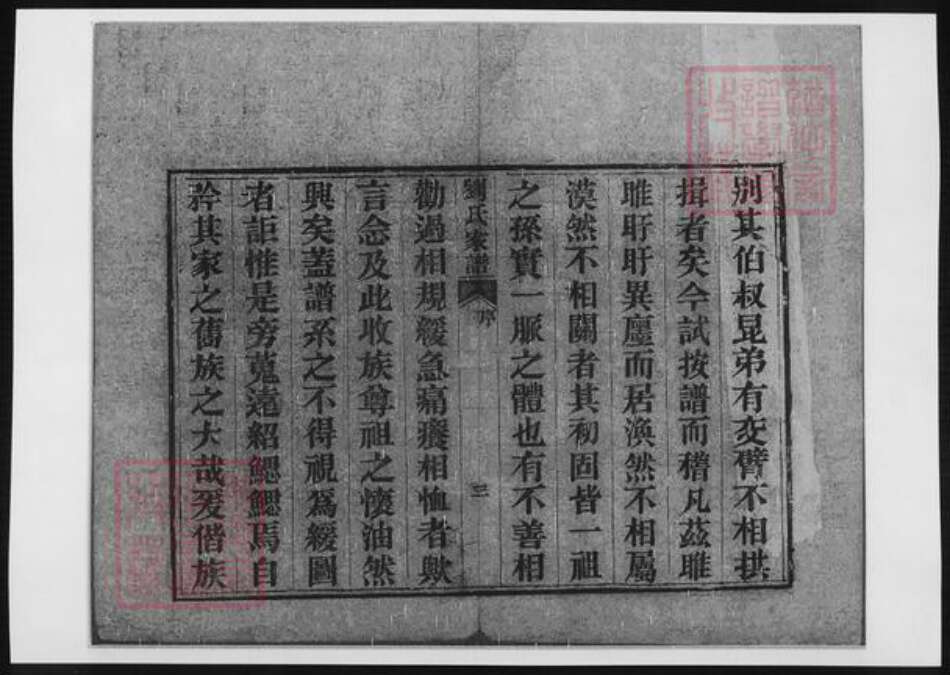 別其伯叔昆弟有交臂不相拱
揖者矣今試按譜而稽凡茲睢
睢盱盱異廛而居渙然不相屬
漠然不相關者其初固皆一祖
之孫實一脈之體也有不善相
劉氏家譜 序 三
勸過相規緩急痛癢相恤者歟
言念及此收族尊祖之懷油然
興矣蓋譜系之不得視為緩圖
者詎惟是旁蒐遠紹鰓鰓焉自
矜其家之舊族之大哉爰偕族